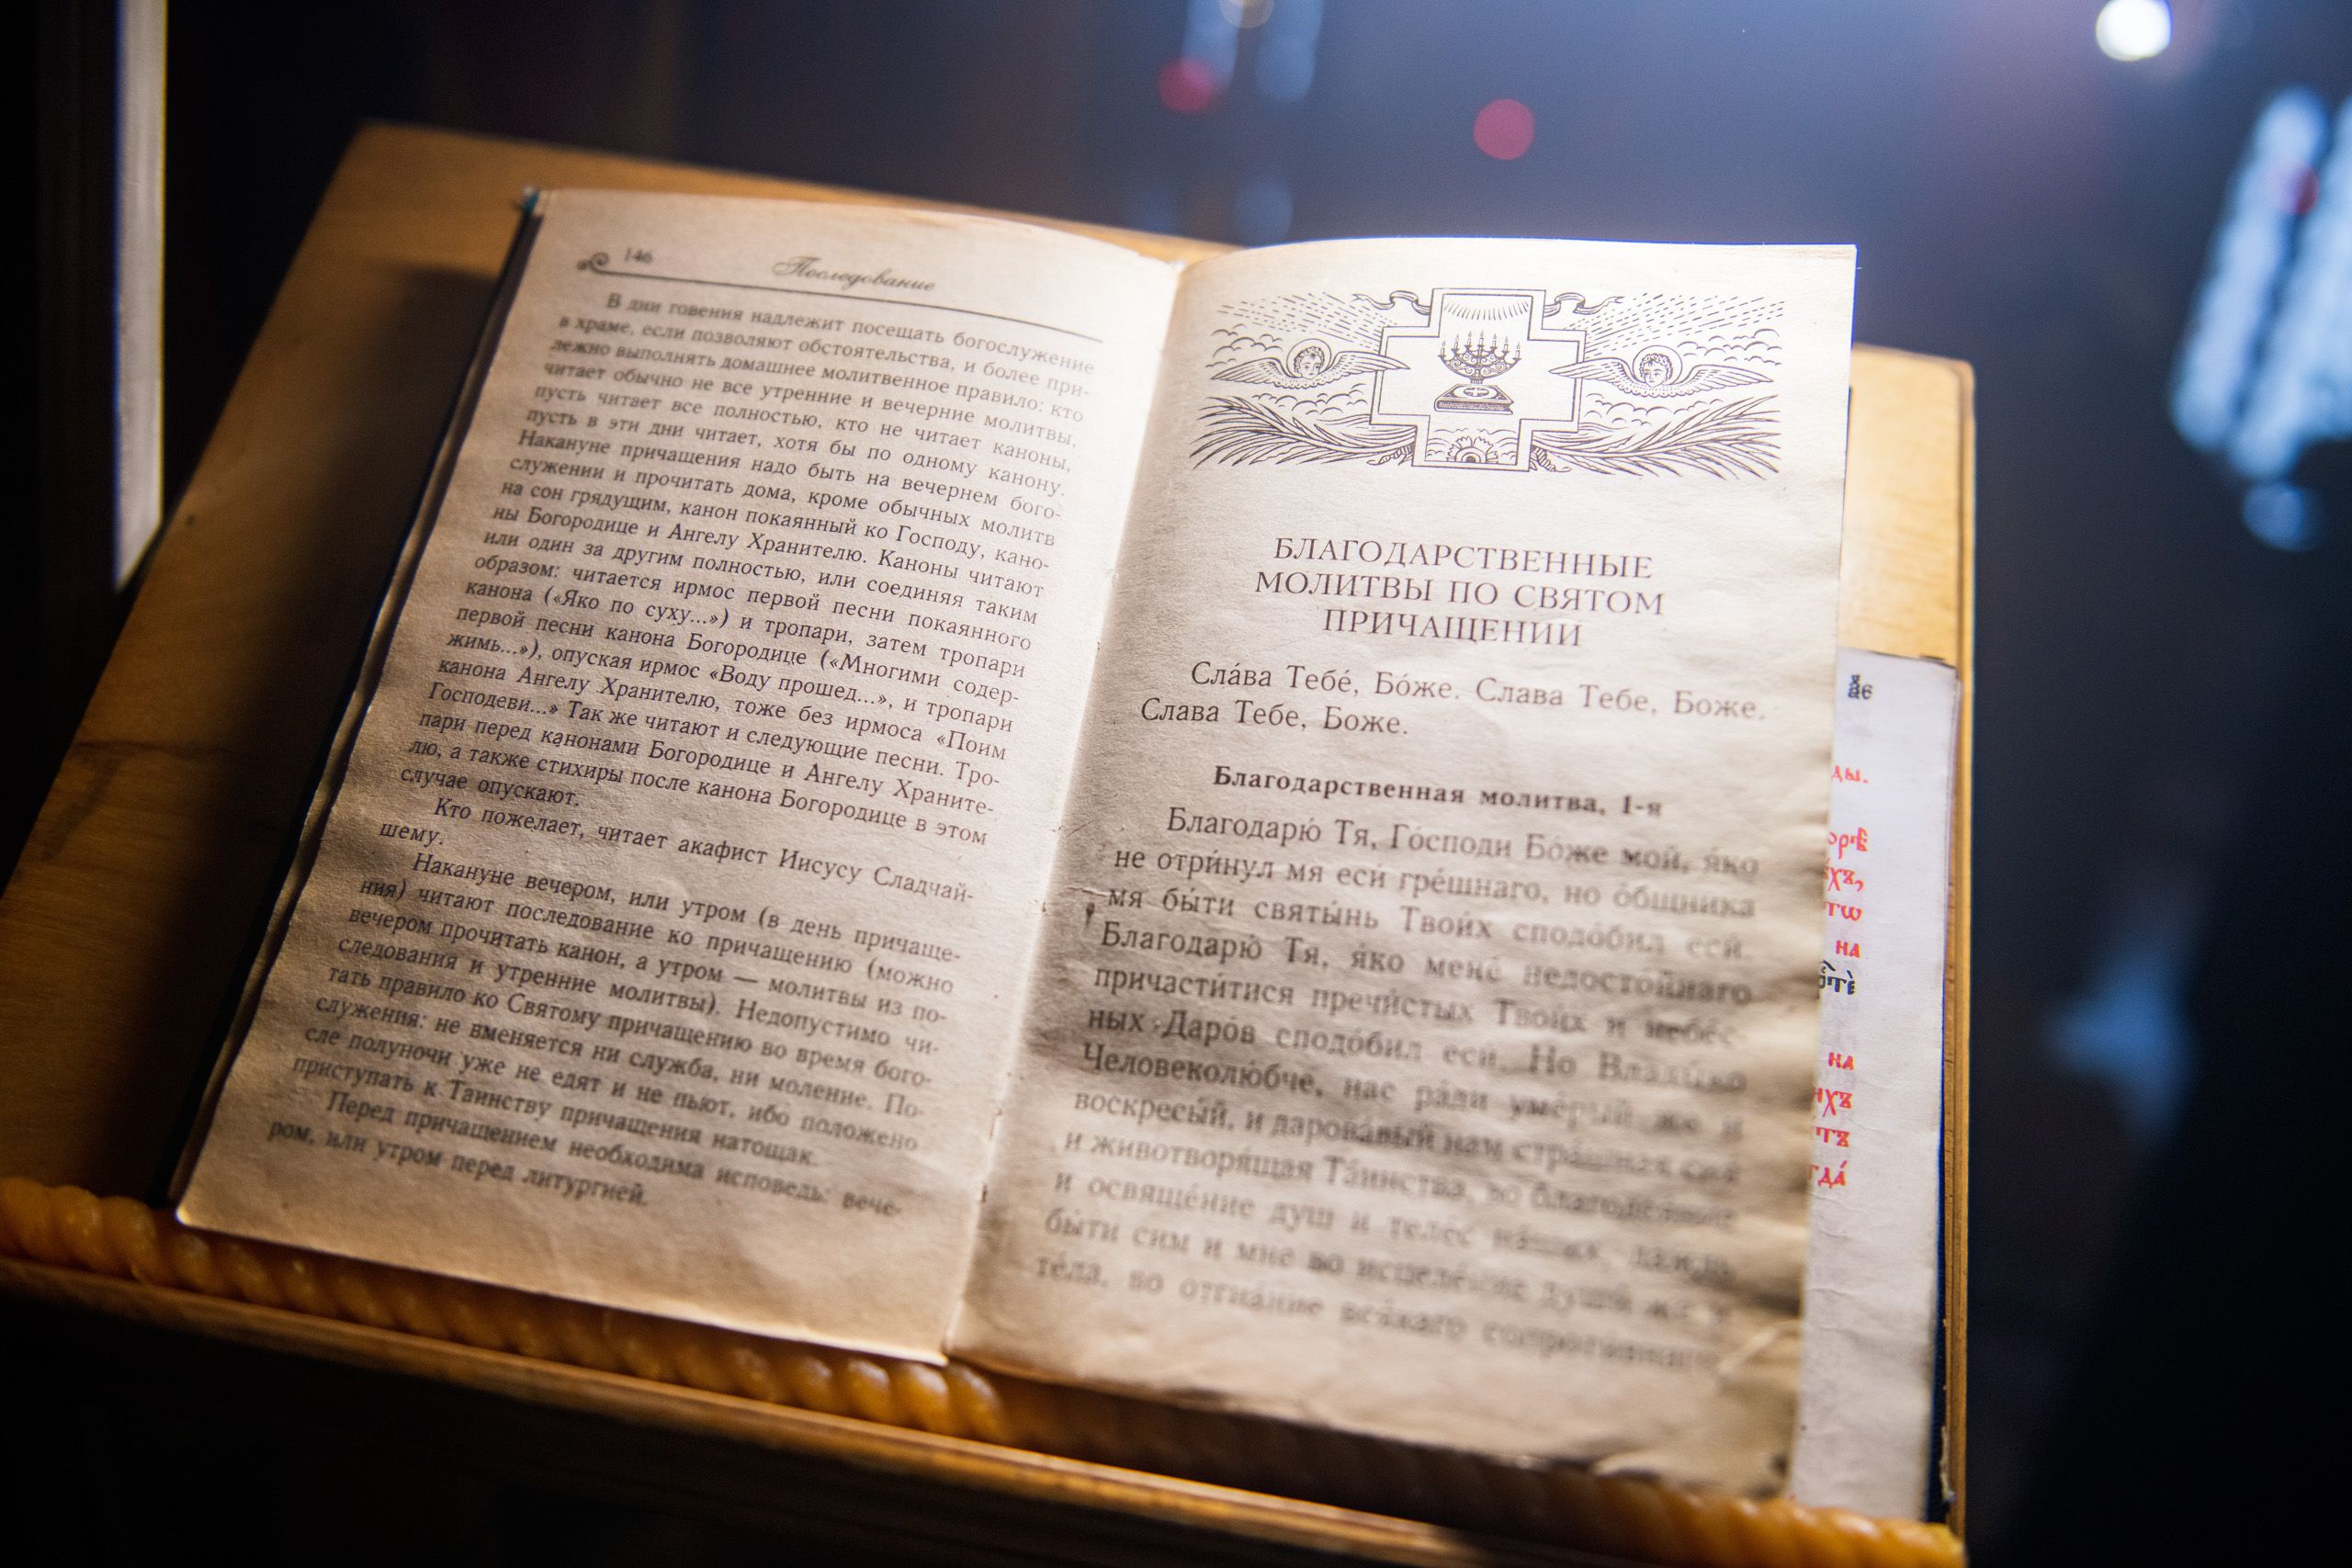 146
Последование
В дни говения надлежит посещать богослужение
в храме, если позволяют обстоятельства, и более при-
лежно выполнять домашнее молитвенное правило: кто
читает обычно не все утренние и вечерние молитвы,
пусть читает все полностью, кто не читает каноны,
пусть в эти дни читает, хотя бы по одному канону.
Накануне причащения надо быть на вечернем бого-
служении и прочитать дома, кроме обычных молитв
на сон грядущим, канон покаянный ко Господу, кано-
ны Богородице и Ангелу Хранителю. Каноны читают
или один за другим полностью, или соединяя таким
образом: читается ирмос первой песни покаянного
канона («Яко по суху...») и тропари, затем тропари
первой песни канона Богородице («Многими содер-
жимь...»), опуская ирмос «Воду прошед...», и тропари
канона Ангелу Хранителю, тоже без ирмоса «Поим
Господеви...» Так же читают и следующие песни. Тро-
пари перед канонами Богородице и Ангелу Храните-
лю, а также стихиры после канона Богородице в этом
случае опускают.
Кто пожелает, читает акафист Иисусу Сладчай-
шему.
Накануне вечером, или утром (в день причаще-
ния) читают последование ко причащению (можно
вечером прочитать канон, а утром — молитвы из по-
следования и утренние молитвы). Недопустимо чи-
тать правило ко Святому причащению во время бого-
служения: не вменяется ни служба, ни моление. По-
сле полуночи уже не едят и не пьют, ибо положено
приступать к Таинству причащения натощак.
Перед причащением необходима исповедь: вече-
ром, или утром перед литургией.
БЛАГОДАРСТВЕННЫЕ
МОЛИТВЫ ПО СВЯТОМ
ПРИЧАЩЕНИИ
Сла́ва Тебе́, Бо́же. Слава Тебе, Боже.
Слава Тебе, Боже.
Благодарственная молитва, 1-я
Благодарю́ Тя, Го́споди Бо́же мой, я́ко
не отри́нул мя еси́ гре́шнаго, но о́бщника
мя бы́ти святы́нь Твои́х сподо́бил еси́.
Благодарю́ Тя, я́ко мене́ недосто́йнаго
причасти́тися пречи́стых Твои́х и небе́с-
ных Даро́в сподо́бил еси́. Но Влады́ко
Человеколю́бче, нас ра́ди уме́рый же и
воскресы́й, и дарова́вый нам стра́шная сия́
и животворя́щая Та́инства, во благодея́ние
и освяще́ние душ и теле́с на́ших, даждь
бы́ти сим и мне во исцеле́ние души́ же и
те́ла, во отгна́ние вся́каго сопроти́внаго
ды.
на
на
гда́